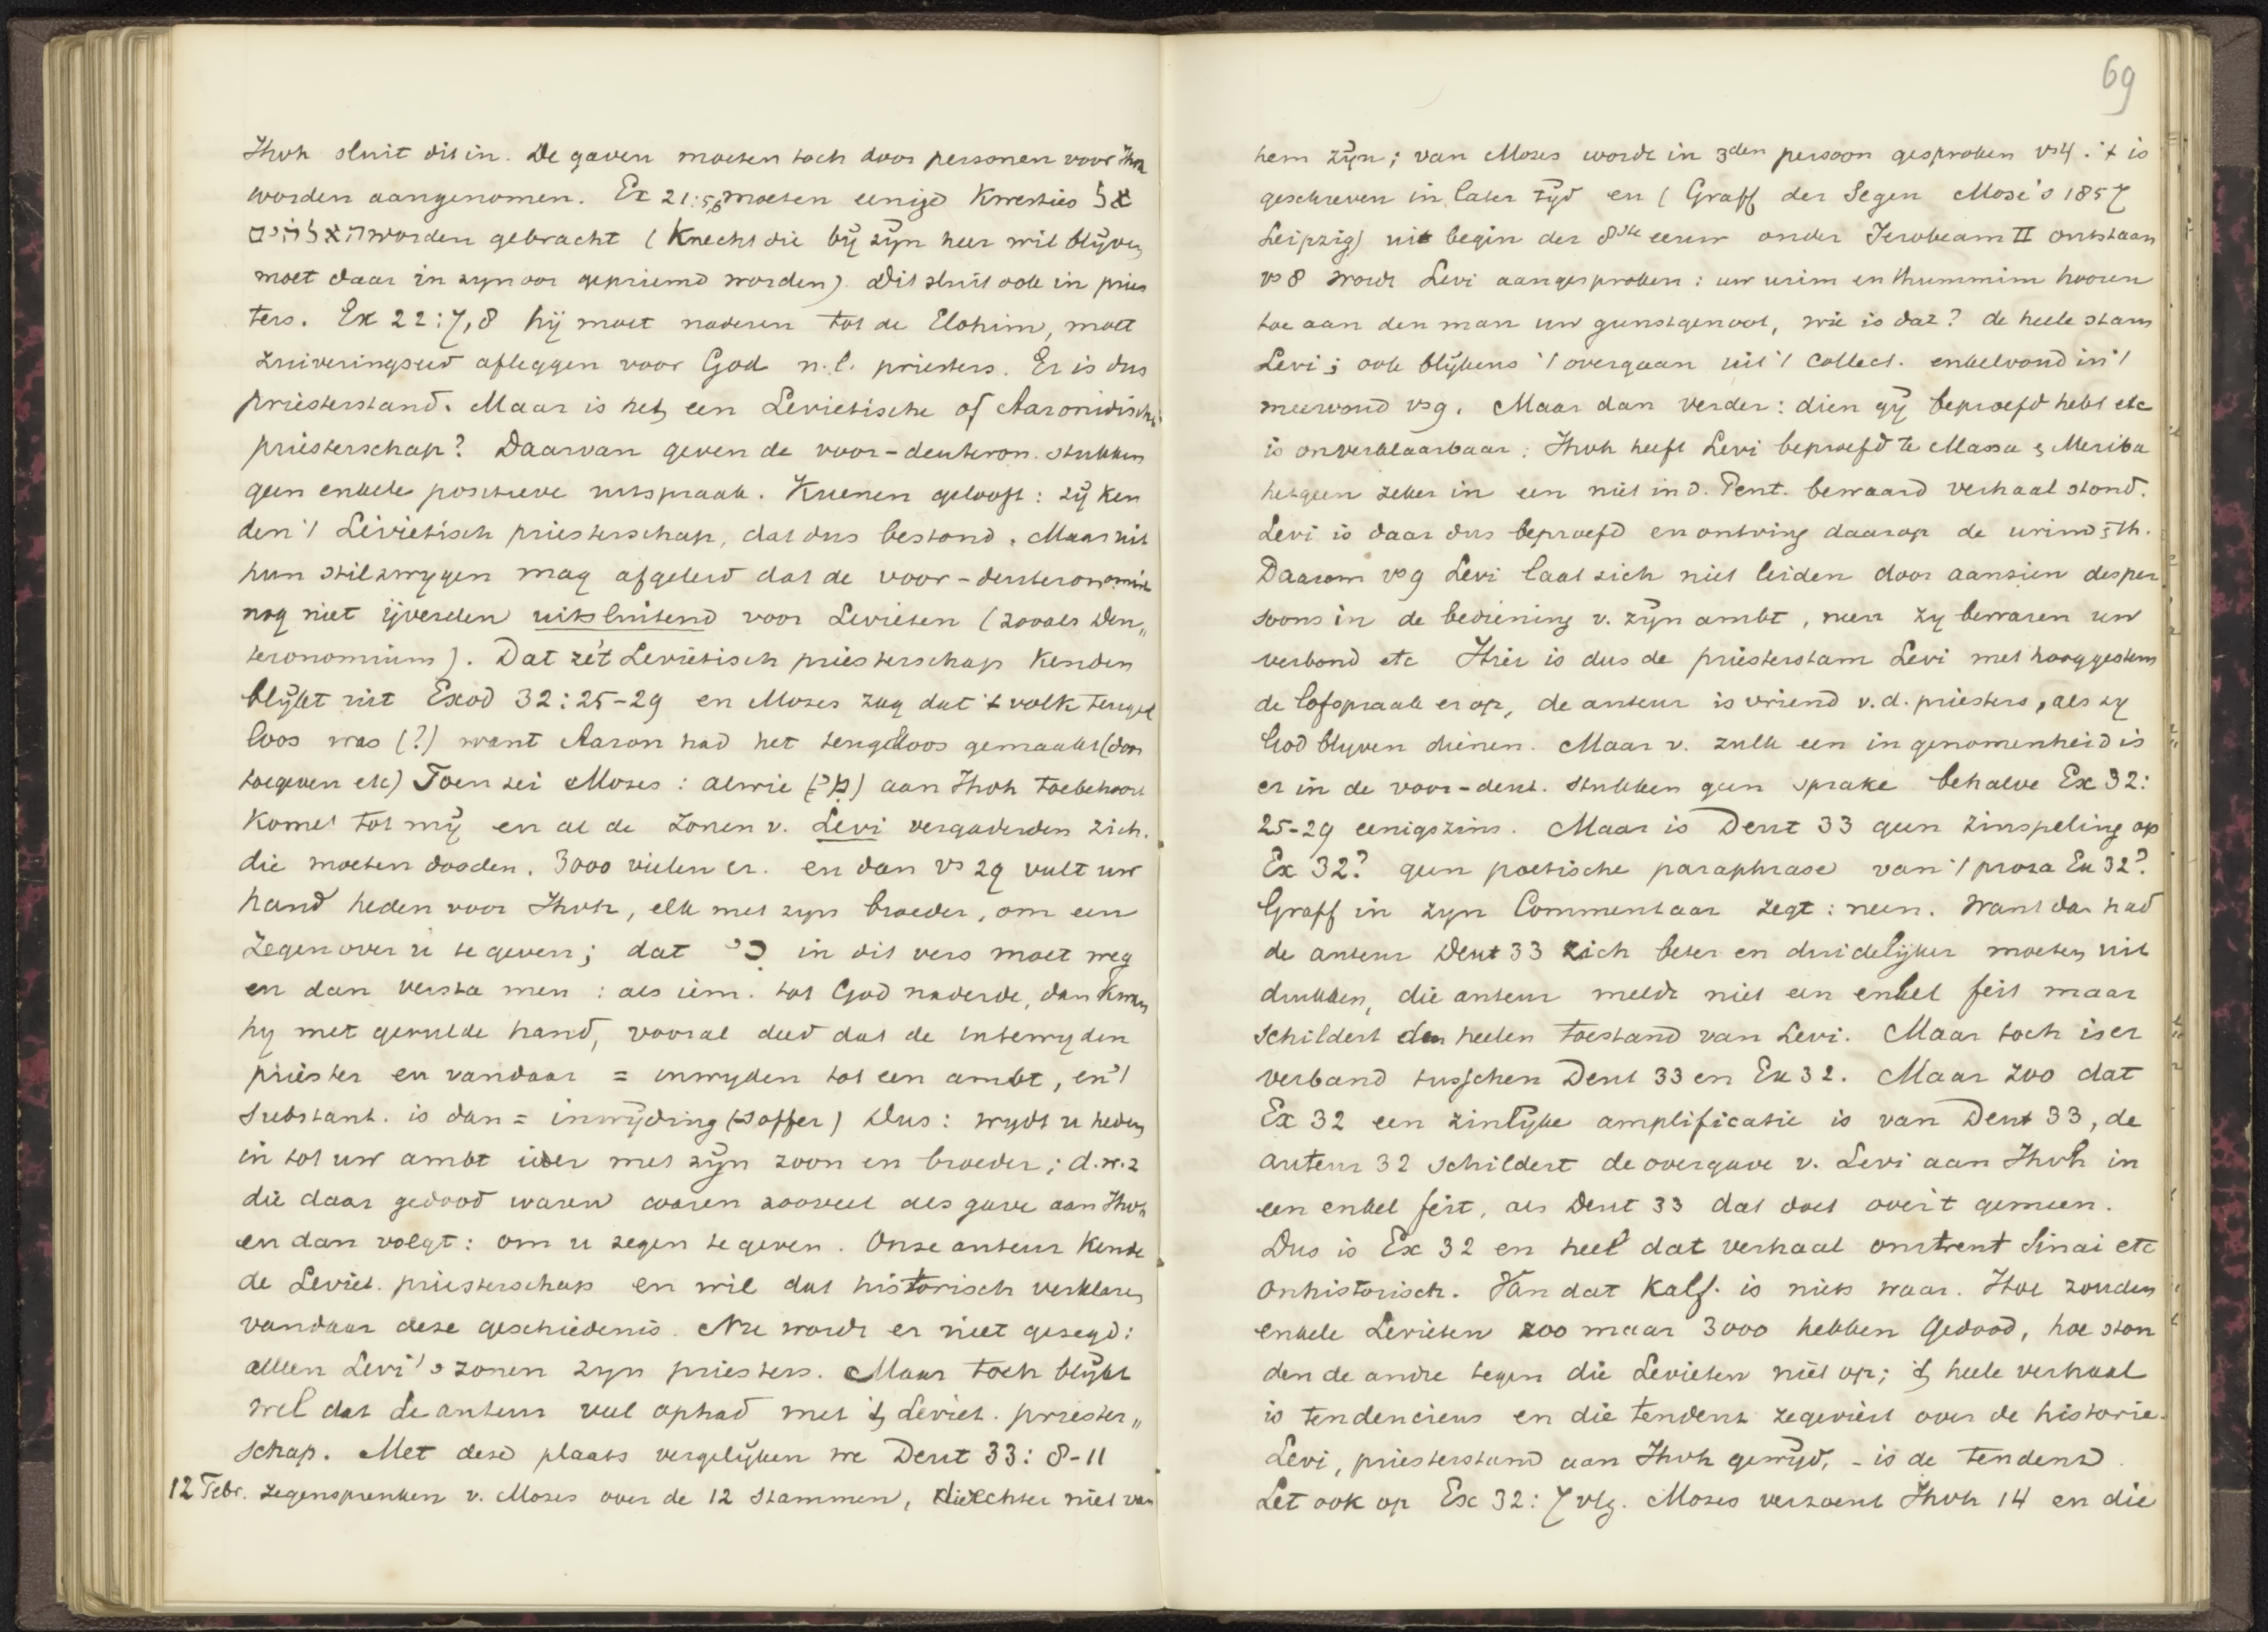 Jhvh sluit dit in. De gaven moeten toch door personen voor Jhvh
worden aangenomen. Ex 21:5,6 moeten eenige kwesties אל
האלהים worden gebracht (Knecht die bij zijn heer wil blijven
moet daar in zijn oor gepriemd worden). Dit sluit ook in pries
ters. Ex 22:7,8 hij moet naderen tot de Elohim, moet
zuiveringseed afleggen voor God n.l. priesters. Er is dus
priesterstand. Maar is het een Levietische of Aaronidische
priesterschap? Daarvan geven de voor-deuteron. stukken
geen enkele positieve uitspraak. Kuenen gelooft: zij ken
den 't Levietisch priesterschap, dat dus bestond. Maar uit
hun stilzwijgen mag afgeleid dat de voor-deuteronomist
nog niet ijverden uitsluitend voor Levieten (zooals Deu„
teronomium). Dat ze 't Levietisch priesterschap kenden
blijkt uit Exod 32:25-29 en Mozes zag dat 't volk teugel
loos was (?) want Aaron had het teugelloos gemaakt (door
toegeven etc) Toen zei Mozes: alwie (מי) aan Jhvh toebehoort
komt tot mij en al de zonen v. Levi vergaderden zich.
die moeten dooden. 3000 vielen er. en dan vs 29 vult uw
hand heden voor Jhvh, elk met zijn broeder, om een
zegen over u te geven; dat כי in dit vers moet weg
en dan versta men: als iem. tot God naderde, dan kwam
hij met gevulde hand, vooral deed dat de intewijden
priester en vandaar = inwijden tot een ambt, en 't
substant. is dan = inwijding (offer) Dus: wijdt u heden
in tot uw ambt ieder met zijn zoon en broeder; d.w.z
die daar gedood waren waren zooveel als gave aan Jhvh
en dan volgt: om u zegen te geven. Onze auteur kende
de Leviet. priesterschap en wil dat historisch verklaren
vandaar deze geschiedenis. Nu wordt er niet gezegd:
alleen Levi's zonen zijn priesters. Maar toch blijkt
wel dat de auteur veel ophad met 't Leviet. priester„
schap. Met deze plaats vergelijken we Deut 33: 8-11
12 Febr. zegenspreuken v. Mozes over de 12 stammen, die echter niet van
69
hem zijn; van Mozes wordt in 3den persoon gesproken vs4. 't is
geschreven in later tijd en (Graff der Segen Mose's 1857
Leipzig) uit begin der 8ste eeuw onder Jerobeam II ontstaan
vs 8 wordt Levi aangesproken: uw urim en thummim hooren
toe aan den man uw gunstgenoot, wie is dat? de heele stam
Levi; ook blijkens 't overgaan uit 't collect. enkelvoud in 't
meervoud vs9. Maar dan verder: dien gij beproefd hebt etc
is onverklaarbaar: Jhvh heeft Levi beproefd te Massa & Meriba
hetgeen zeker in een niet in d. Pent. bewaard verhaal stond.
Levi is daar dus beproefd en ontving daarop de urim & th.
Daarom vs9 Levi laat zich niet leiden door aanzien des per
soons in de bediening v. zijn ambt, neen zij bewaren uw
verbond etc Hier is dus de priesterstam Levi met hooggestem
de lofspraak er op, de auteur is vriend v.d. priesters, als zij
God blijven dienen. Maar v. zulk een in genomenheid is
er in de voor-deut. stukken geen sprake behalve Ex 32:
25-29 eenigszins. Maar is Deut 33 geen zinspeling op
Ex 32? geen poetische paraphrase van 't proza Ex 32?
Graff in zijn Commentaar zegt: neen. Want dan had
de auteur Deut 33 zich beter en duidelijker moeten uit
drukken, die auteur meldt niet een enkel feit maar
schildert den heelen toestand van Levi. Maar toch is er
verband tusschen Deut 33 en Ex 32. Maar zoo dat
Ex 32 een zinlijke amplificatie is van Deut 33, de
auteur 32 schildert de overgave v. Levi aan Jhvh in
een enkel feit, als Deut 33 dat doet over 't gemeen.
Dus is Ex 32 en heel dat verhaal omtrent Sinai etc
onhistorisch. Van dat Kalf. is niets waar. Hoe zouden
enkele Levieten zoo maar 3000 hebben gedood, hoe ston
den de andre tegen die Levieten niet op; 't heele verhaal
is tendencieus en die tendenz zegeviert over de historie.
Levi, priesterstand aan Jhvh gewijd, - is de tendenz.
Let ook op Ex 32: 7 vlg. Mozes verzoent Jhvh 14 en die